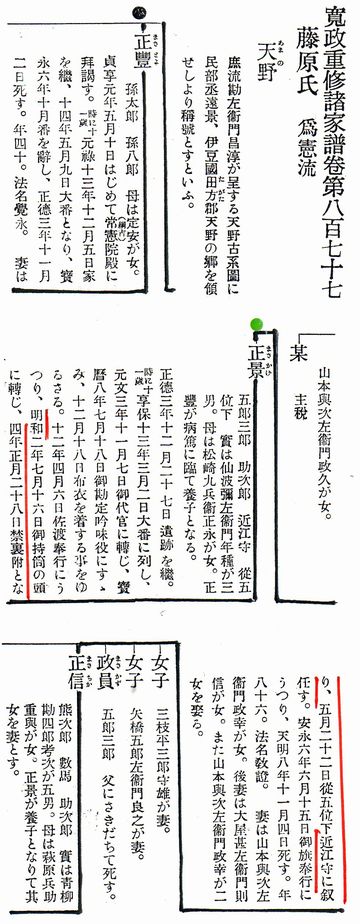 寬政重修諸家譜卷第八百七十七
藤原氏 爲憲流
天野
あまの
庶流勘左衞門昌淳が呈する天野古系圖に
民部丞遠景、伊豆國田方郡天野の鄕を領
せしより稱號とすといふ。
正豐
まさとよ
孫太郎 孫八郎 母は定安が女。
貞享元年五月十日はじめて常憲院殿に
(綱吉)
拜謁す。時に十一歲 元祿十三年十二月五日家
を繼、十四年五月九日大番となり、寳
永六年十月番を辭し、正德三年十一月
二日死す。年四十。法名覺永。 妻は
山本與次左衞門政久が女。
某
主税
正景
まさかげ
五郎三郎 助次郎 近江守 從五
位下 實は仙波彌左衞門年種が三
男。母は松崎九兵衞正永が女。正
豐が病篤に臨て養子となる。
正德三年十二月二十七日遺跡を繼。
時に十一歲 享保十三年三月二日大番に列し、
元文三年十一月七日御代官に轉じ、寳
曆八年七月十八日御勘定吟味役にすゝ
み、十二月十八日布衣を着する事をゆ
るさる。十二年四月六日佐渡奉行にう
つり、明和二年七月十六日御持筒の頭
に轉じ、四年正月二十八日禁裏附とな
り、五月二十二日從五位下近江守に敍
任す。安永六年六月十五日御旗奉行に
うつり、天明八年十一月四日死す。年
八十六。法名敎證。 妻は山本與次左
衞門政幸が女。後妻は大屋甚左衞門則
信が女。また山本與次左衞門政幸が二
女を娶る。
女子
三枝平三郎守雄が妻。
女子
矢橋五郎左衞門良之が妻。
政員
まさかず
五郎三郎 父にさきだちて死す。
正信
まさちか
熊次郎 數馬 助次郎 實は靑柳
勘四郎考次が五男。母は萩原兵助
重興が女。正景が養子となりて其
女を妻とす。